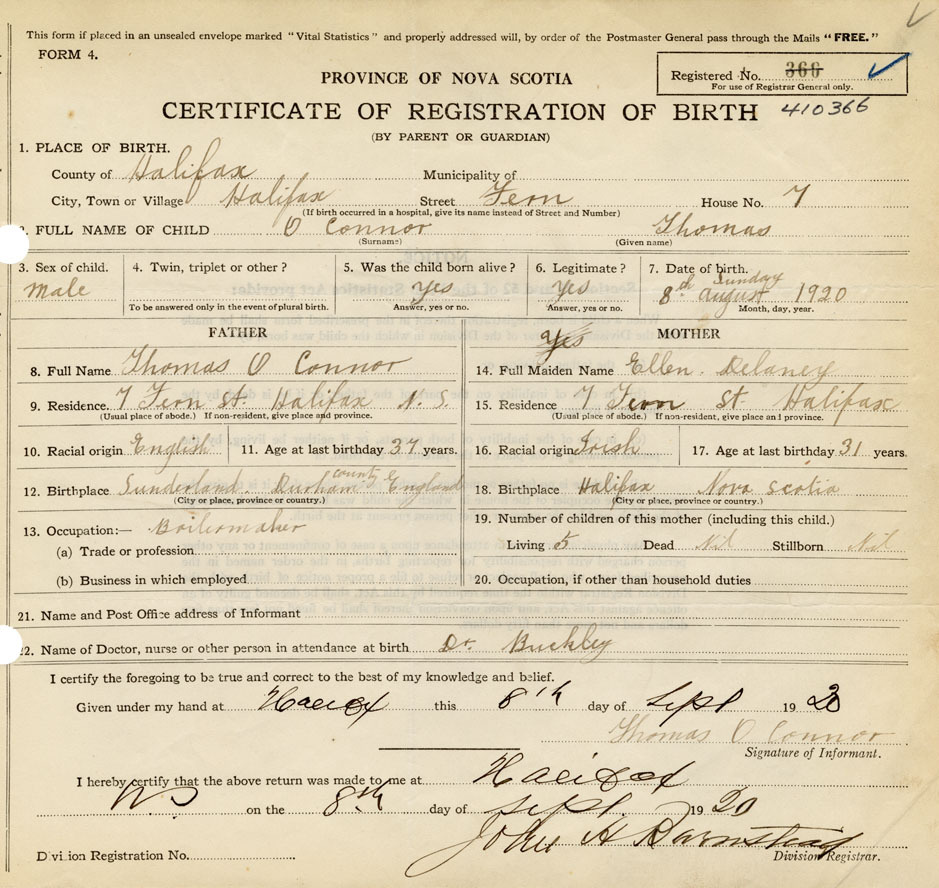 This form if placed in an unsealed envelope marked "Vital Statistics" and properly addressed will, by order of the Postmaster General pass through the Mails "FREE."
FORM 4.
Registered No. 366
For use of Registrar General only.
PROVINCE OF NOVA SCOTIA
CERTIFICATE OF REGISTRATION OF BIRTH 410366
(BY PARENT OR GUARDIAN)
1. PLACE OF BIRTH.
County of Halifax Municipality of
City, Town or Village Halifax Street Fern House No. 7
(If birth occurred in a hospital, give its name instead of Street and Number)
2. FULL NAME OF CHILD O Connor Thomas
(Surname) (Given name)
3. Sex of child. 4. Twin, triplet or other? 5. Was the child born alive? 6. Legitimate? 7. Date of birth.
Male Yes Yes 8th Sunday August 1920
To be answered only in the event of plural birth. Answer, yes or no. Answer, yes or no. Month, day, year.
FATHER yes MOTHER
8. Full Name Thomas O Connor 14. Full Maiden Name Ellen. Delaney
9. Residence. 7 Fern St. Halifax N. S. 15. Residence 7 Fern St Halifax
(Usual place of abode.) If non-resident, give place and province. (Usual place of abode.) If non-resident, give place and province.
10. Racial origin English 11. Age at last birthday 37 years. 16. Racial origin Irish 17. Age at last birthday 31 years.
12. Birthplace Sunderland. Durham county England 18. Birthplace Halifax Nova Scotia
(City or place, province or country.) (City or place, province or country.)
13. Occupation:— Boilermaker 19. Number of children of this mother (including this child.)
(a) Trade or profession Living 5 Dead Nil Stillborn Nil
(b) Business in which employed 20. Occupation, if other than household duties
21. Name and Post Office address of Informant
22. Name of Doctor, nurse or other person in attendance at birth Dr. Buckley
I certify the foregoing to be true and correct to the best of my knowledge and belief.
Given under my hand at Halifax this 8th day of Sept 1920
Thomas O Connor
Signature of Informant.
I hereby certify that the above return was made to me at Halifax
NS on the 8th day of Sept. 1920
John A Barnstead
Division Registration No. Division Registrar.